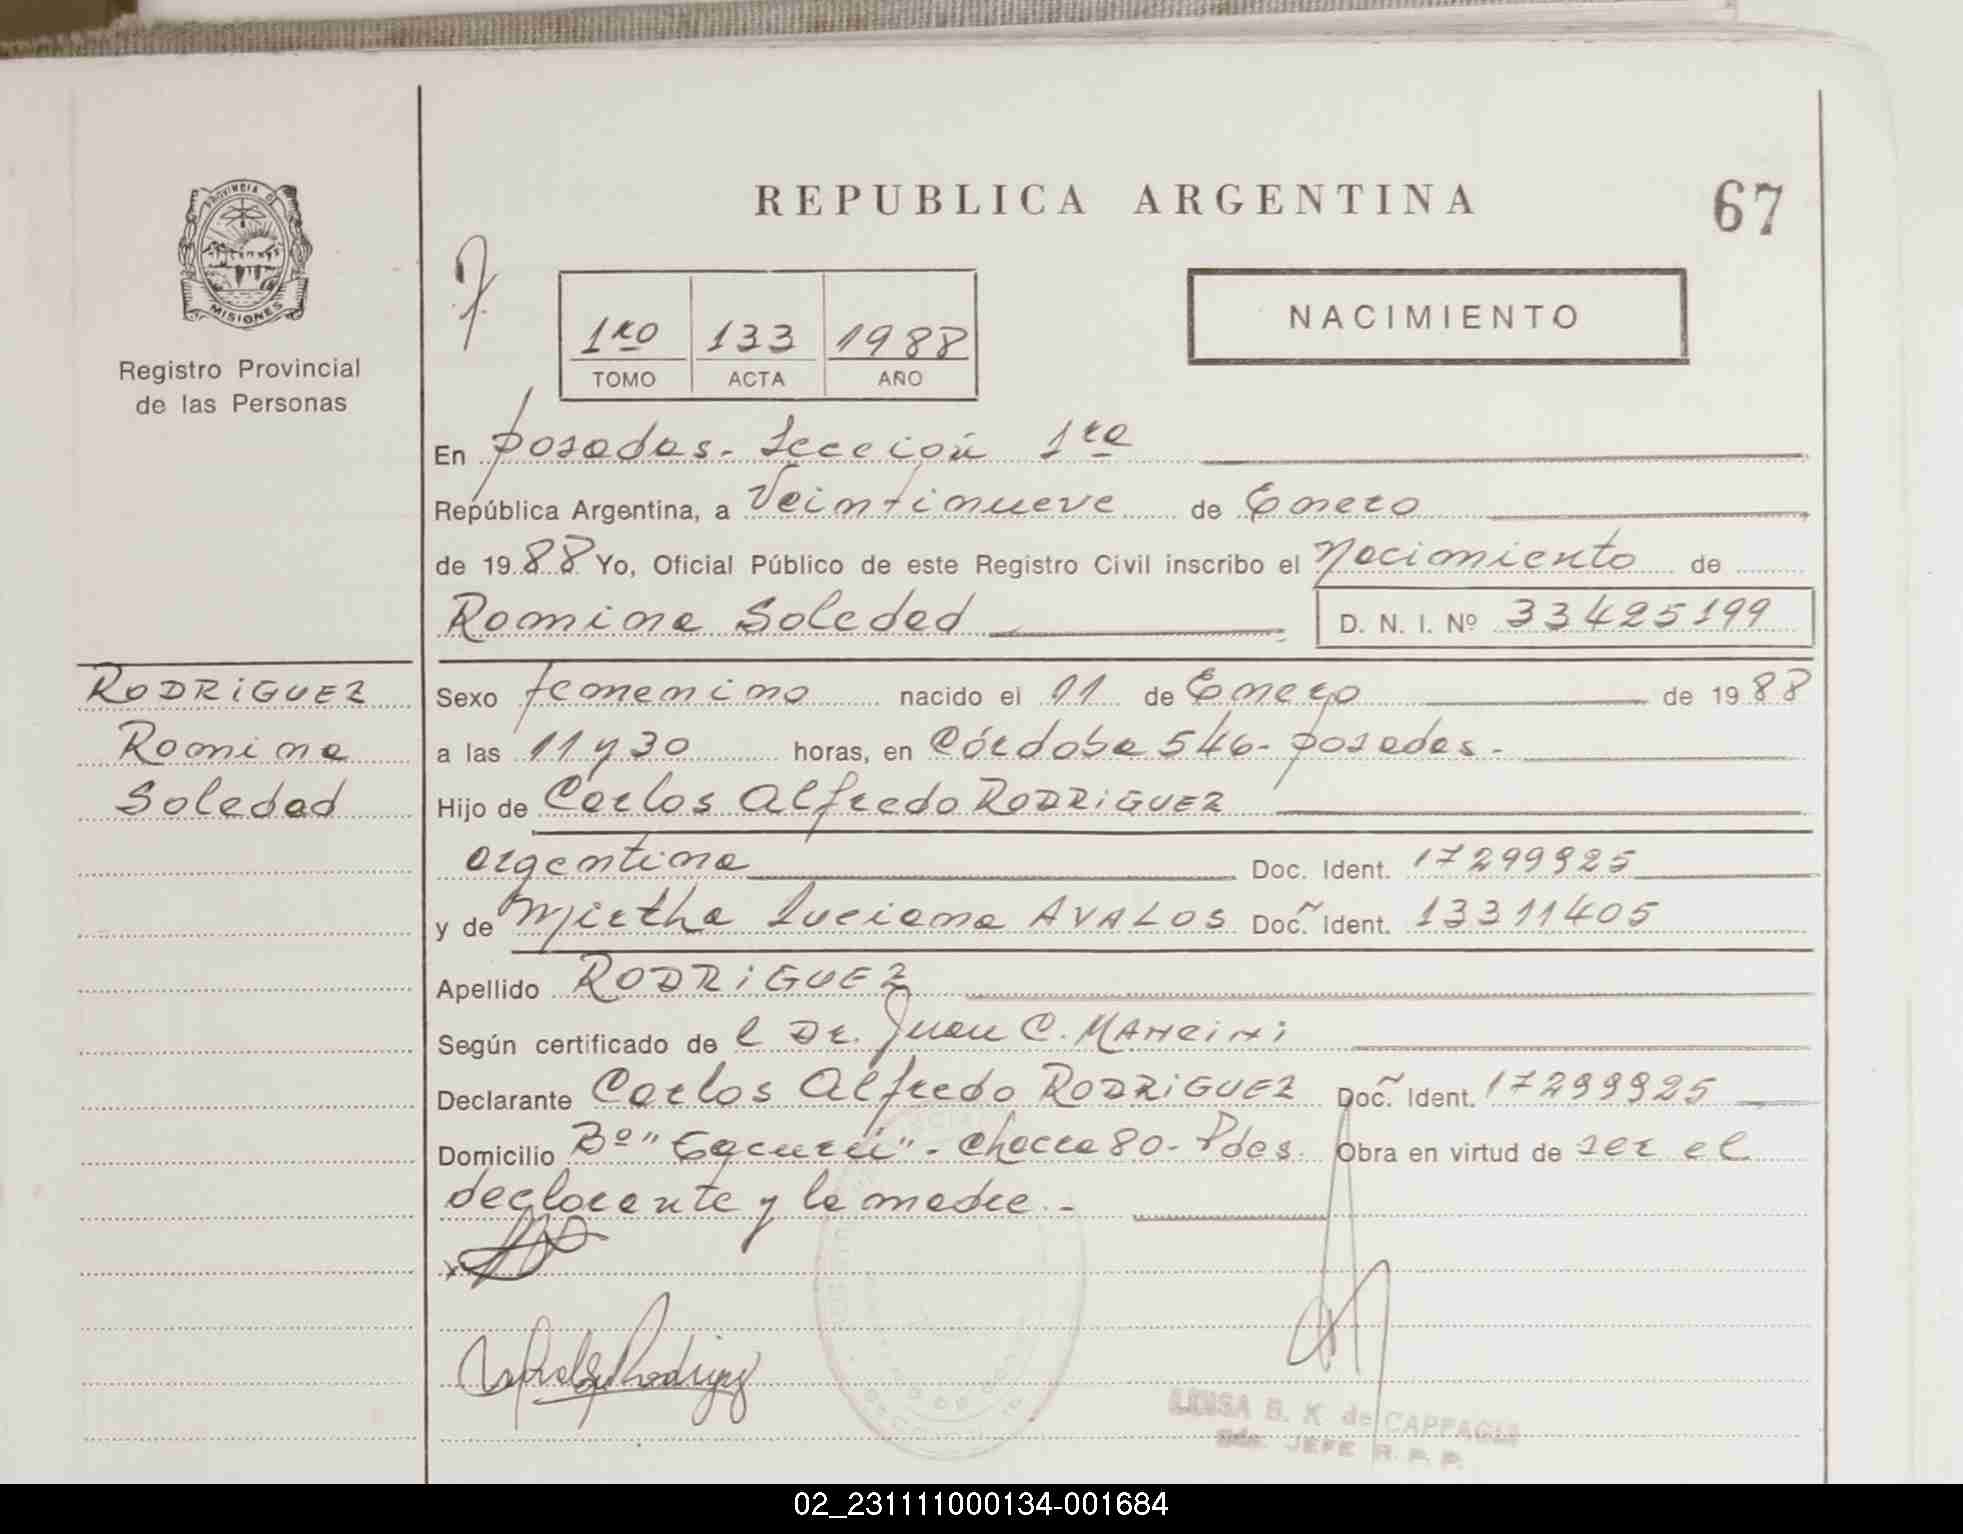 REPUBLICA ARGENTINA
67
PROVINCIA DE
MISIONES
Registro Provincial
de las Personas
1ro 133 1988
TOMO ACTA AÑO
NACIMIENTO
En Posadas - Sección 1ra
República Argentina, a Veintinueve de Enero
de 1988 Yo, Oficial Público de este Registro Civil inscribo el Nacimiento de
Romina Soledad D. N. I. Nº 33425199
RODRIGUEZ
Romina
Soledad
Sexo femenino nacido el 11 de Enero de 1988
a las 11 y 30 horas, en Córdoba 546 - Posadas -
Hijo de Carlos Alfredo RODRIGUEZ
argentina Doc. Ident. 17299925
y de Mirtha Luciana AVALOS Doc. Ident. 13311405
Apellido RODRIGUEZ
Según certificado de l Dr. Juan C. MANCINI
Declarante Carlos Alfredo RODRIGUEZ Doc. Ident. 17299925
Domicilio Bº " " - Chacra 80 - Pdas. Obra en virtud de ser el
declarante y la madre. -
LUISA B. K de
JEFE R. P. P.
02_231111000134-001684